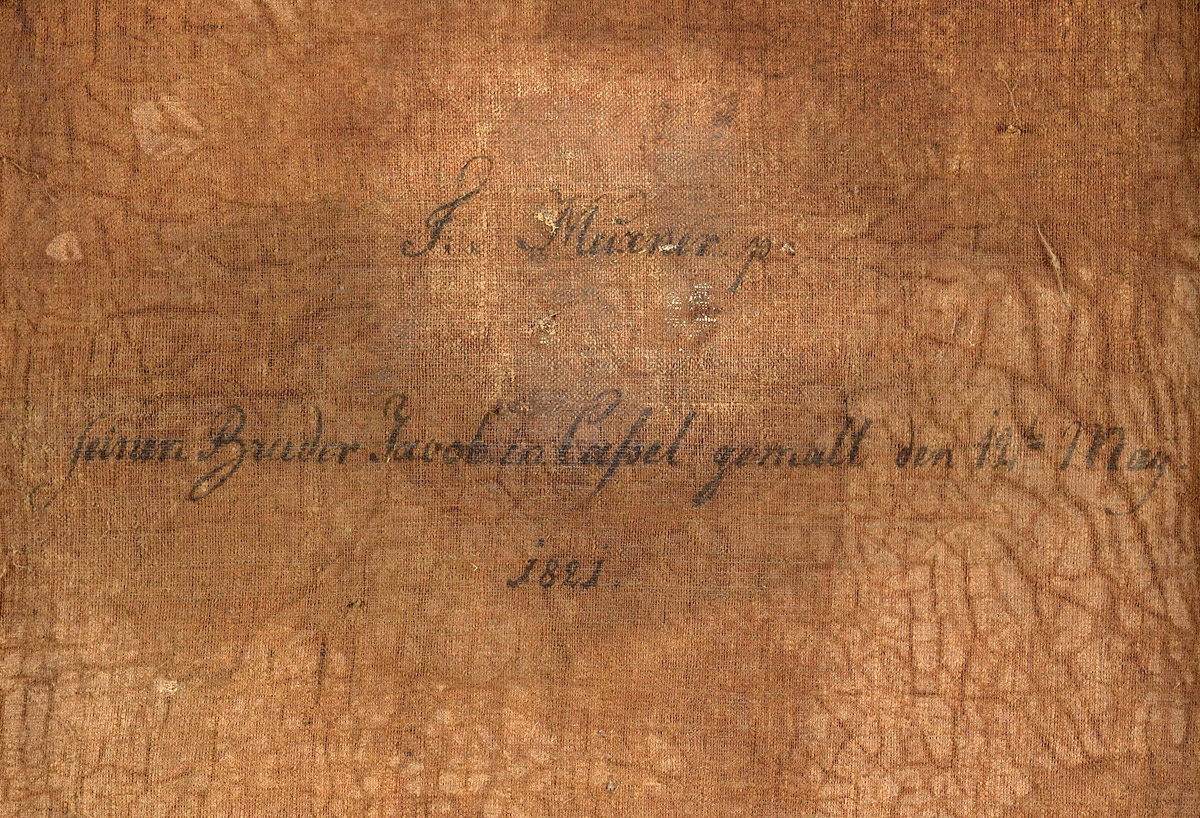 F. Murner p.
seinen Bruder Jacob in Caßel gemalt den 12te May
1821.